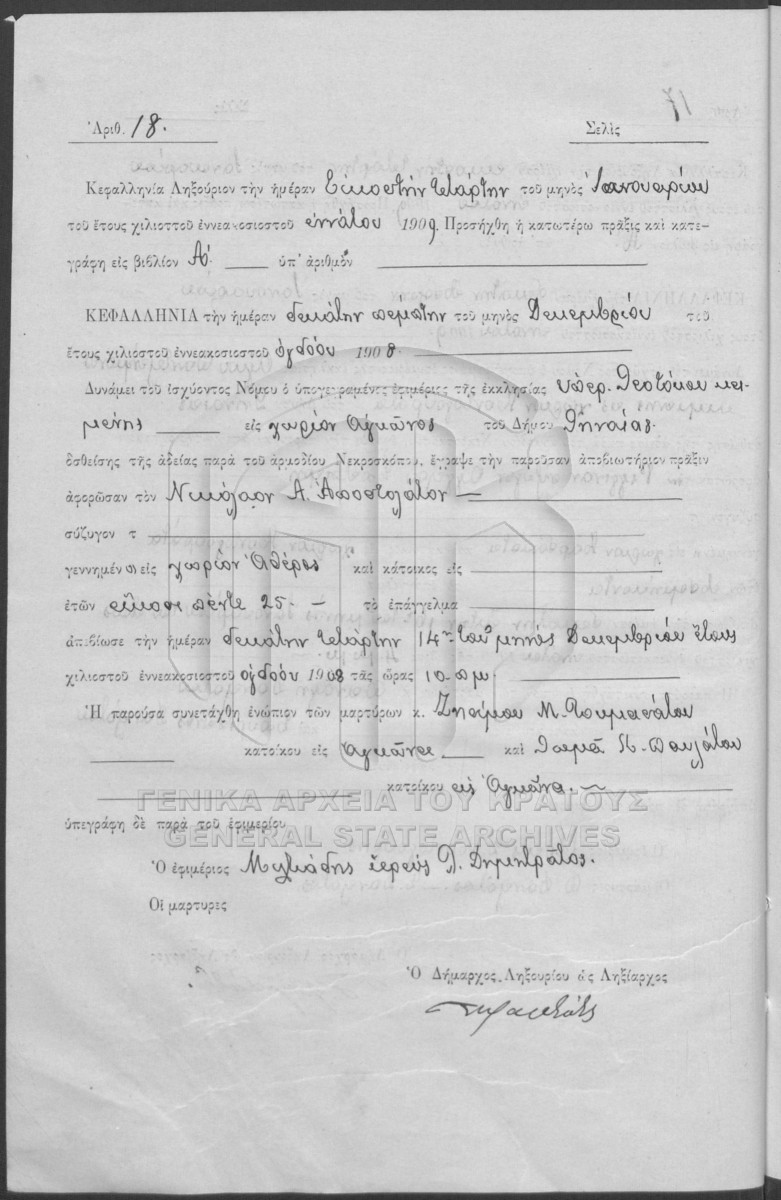 Ἀριθ. 18. Σελὶς
Κεφαλληνία Ληξούριον τὴν ἡμέραν Εἰκοστὴν τετάρτην τοῦ μηνὸς Ἰανουαρίου
τοῦ ἔτους χιλιοττοῦ ἐννεακοσιοστοῦ ἐννάτου 1909. Προσήχθη ἡ κατωτέρω πρᾶξις καὶ κατε-
γράφη εἰς βιβλίον Α΄. ὑπ' ἀριθμὸν
ΚΕΦΑΛΛΗΝΙΑ τὴν ἡμέραν δεκάτην πέμπτην τοῦ μηνὸς Δεκεμβρίου τοῦ
ἔτους χιλιοστοῦ ἐννεακοσιοστοῦ ὀγδόου 1908.
Δυνάμει τοῦ ἰσχύοντος Νόμου ὁ ὑπογεγραμένες ἐφιμέριος τῆς ἐκκλησίας ὑπερ. Θεοτόκου κει-
μένης εἰς χωρίον Ἀγκῶνος τοῦ Δήμου Θηναίας.
δοθείσης τῆς ἀδείας παρὰ τοῦ ἁρμοδίου Νεκροσκόπου, ἔγραψε τὴν παροῦσαν ἀποβιωτήριον πρᾶξιν
ἀφορῶσαν τὸν Νικόλαον Α. Ἀποστολάτον
σύζυγον τ
γεννημέν ον εἰς χωρίον Ἀθέρος καὶ κάτοικος εἰς
ἐτῶν εἴκοσι πέντε 25. τὸ ἐπάγγελμα
ἀπεβίωσε τὴν ἡμέραν δεκάτην τετάρτην 14ην τοῦ μηνὸς Δεκεμβρίου ἔτους
χιλιοστοῦ ἐννεακοσιοστοῦ ὀγδόου 1908 τὰς ὥρας 10 π μ.
Ἡ παροῦσα συνετάχθη ἐνώπιον τῶν μαρτύρων κ. Ζησίμου Μ. Τουμασάτου
κατοίκου εἰς Ἀγκῶνα καὶ Θωμᾶ Π. Παυλάτου
κατοίκου εἰς Ἀγκῶνα.
ΓΕΝΙΚΑ ΑΡΧΕΙΑ ΤΟΥ ΚΡΑΤΟΥΣ
ὑπεγράφη δὲ παρὰ τοῦ ἐφιμερίου
GENERAL STATE ARCHIVES
Ὁ ἐφιμέριος Μιλτιάδης ἱερεὺς Π. Δημητράτος.
Οἱ μαρτυρες
Ὁ Δήμαρχος Ληξουρίου ὡς Ληξίαρχος